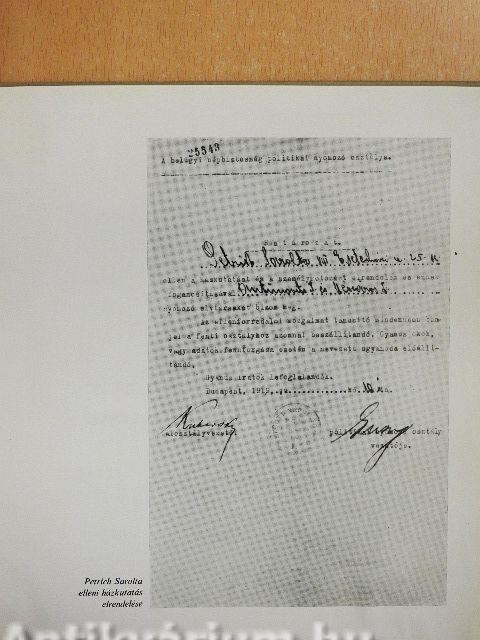 25343
A belügyi népbiztosság politikai nyomozó osztálya.
Határozat.
Petrich Sarolta VII. 25.
ellen a házkutatást és a személymotozást elrendelem és ennek
foganatosításával
nyomozó elvtársakat bízom meg.
Az ellenforradalmi mozgalmat tanusító mindennemű
jel a fenti osztályhoz azonnal beszállítandó. Gyanus okok,
vagy adatok fennforgása esetén a nevezett ugyancsak előállí-
tandó.
Gyanus iratok lefoglalandók.
Budapest, 1919. hó 10 n.
alosztályvezető.
politikai osztály
vezetője.
Petrich Sarolta
elleni házkutatás
elrendelése
Antikvárium.hu